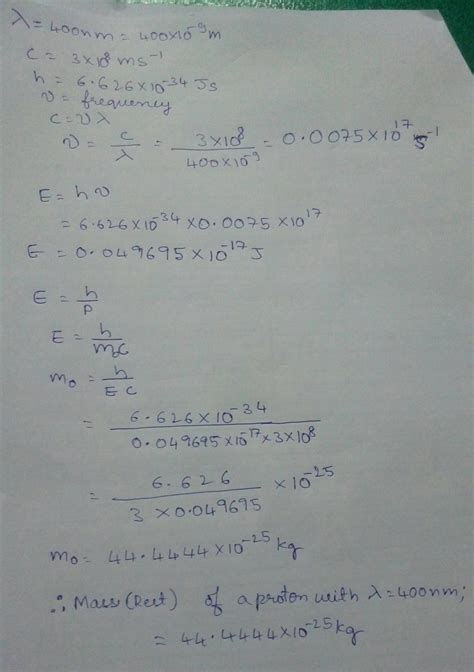 λ = 400nm = 400x10⁻⁹m
C = 3x10⁸ ms⁻¹
h = 6.626x10⁻³⁴ Js
ν = frequency
C = νλ
ν = c/λ = 3x10⁸/400x10⁻⁹ = 0.0075x10¹⁷ s⁻¹
E = hν
= 6.626x10⁻³⁴ x0.0075x10¹⁷
E = 0.049695x10⁻¹⁷J
E = h/P
E = h/m₀C
m₀ = h/EC
= 6.626x10⁻³⁴/0.049695x10⁻¹⁷x3x10⁸
= 6.626/3x0.049695 x10⁻²⁵
m₀ = 44.4444x10⁻²⁵kg
∴ Mass (Rest) of a proton with λ=400nm;
= 44.4444x10⁻²⁵kg